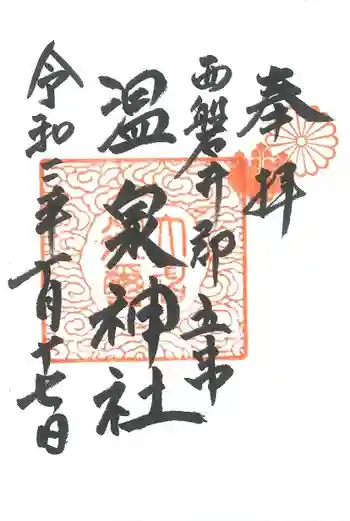 奉拝
西磐井郡 五串
温泉神社
令和二年十一月十七日